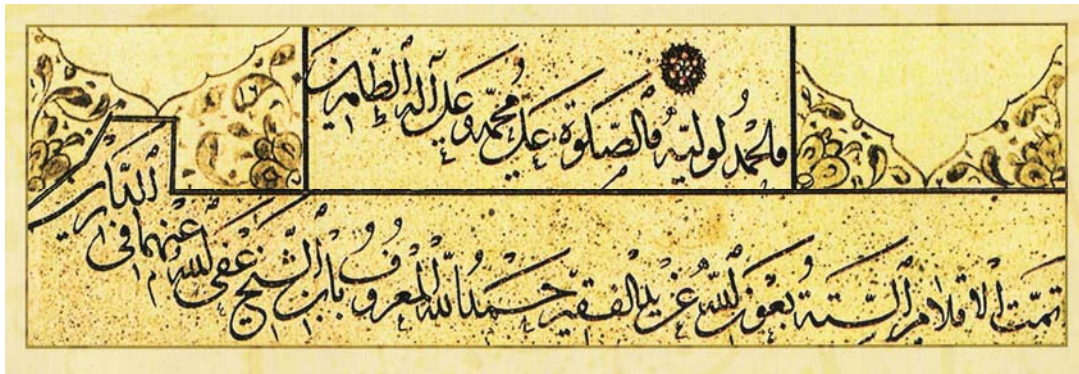 والحمد لوليه والصلوة على محمد وعلى آله الطاهرين
تمت الأقلام الستة بعون الله عن يد الفقير حمد الله المعروف بابن الشيخ عفى الله عنهما فى الدارين
١٦